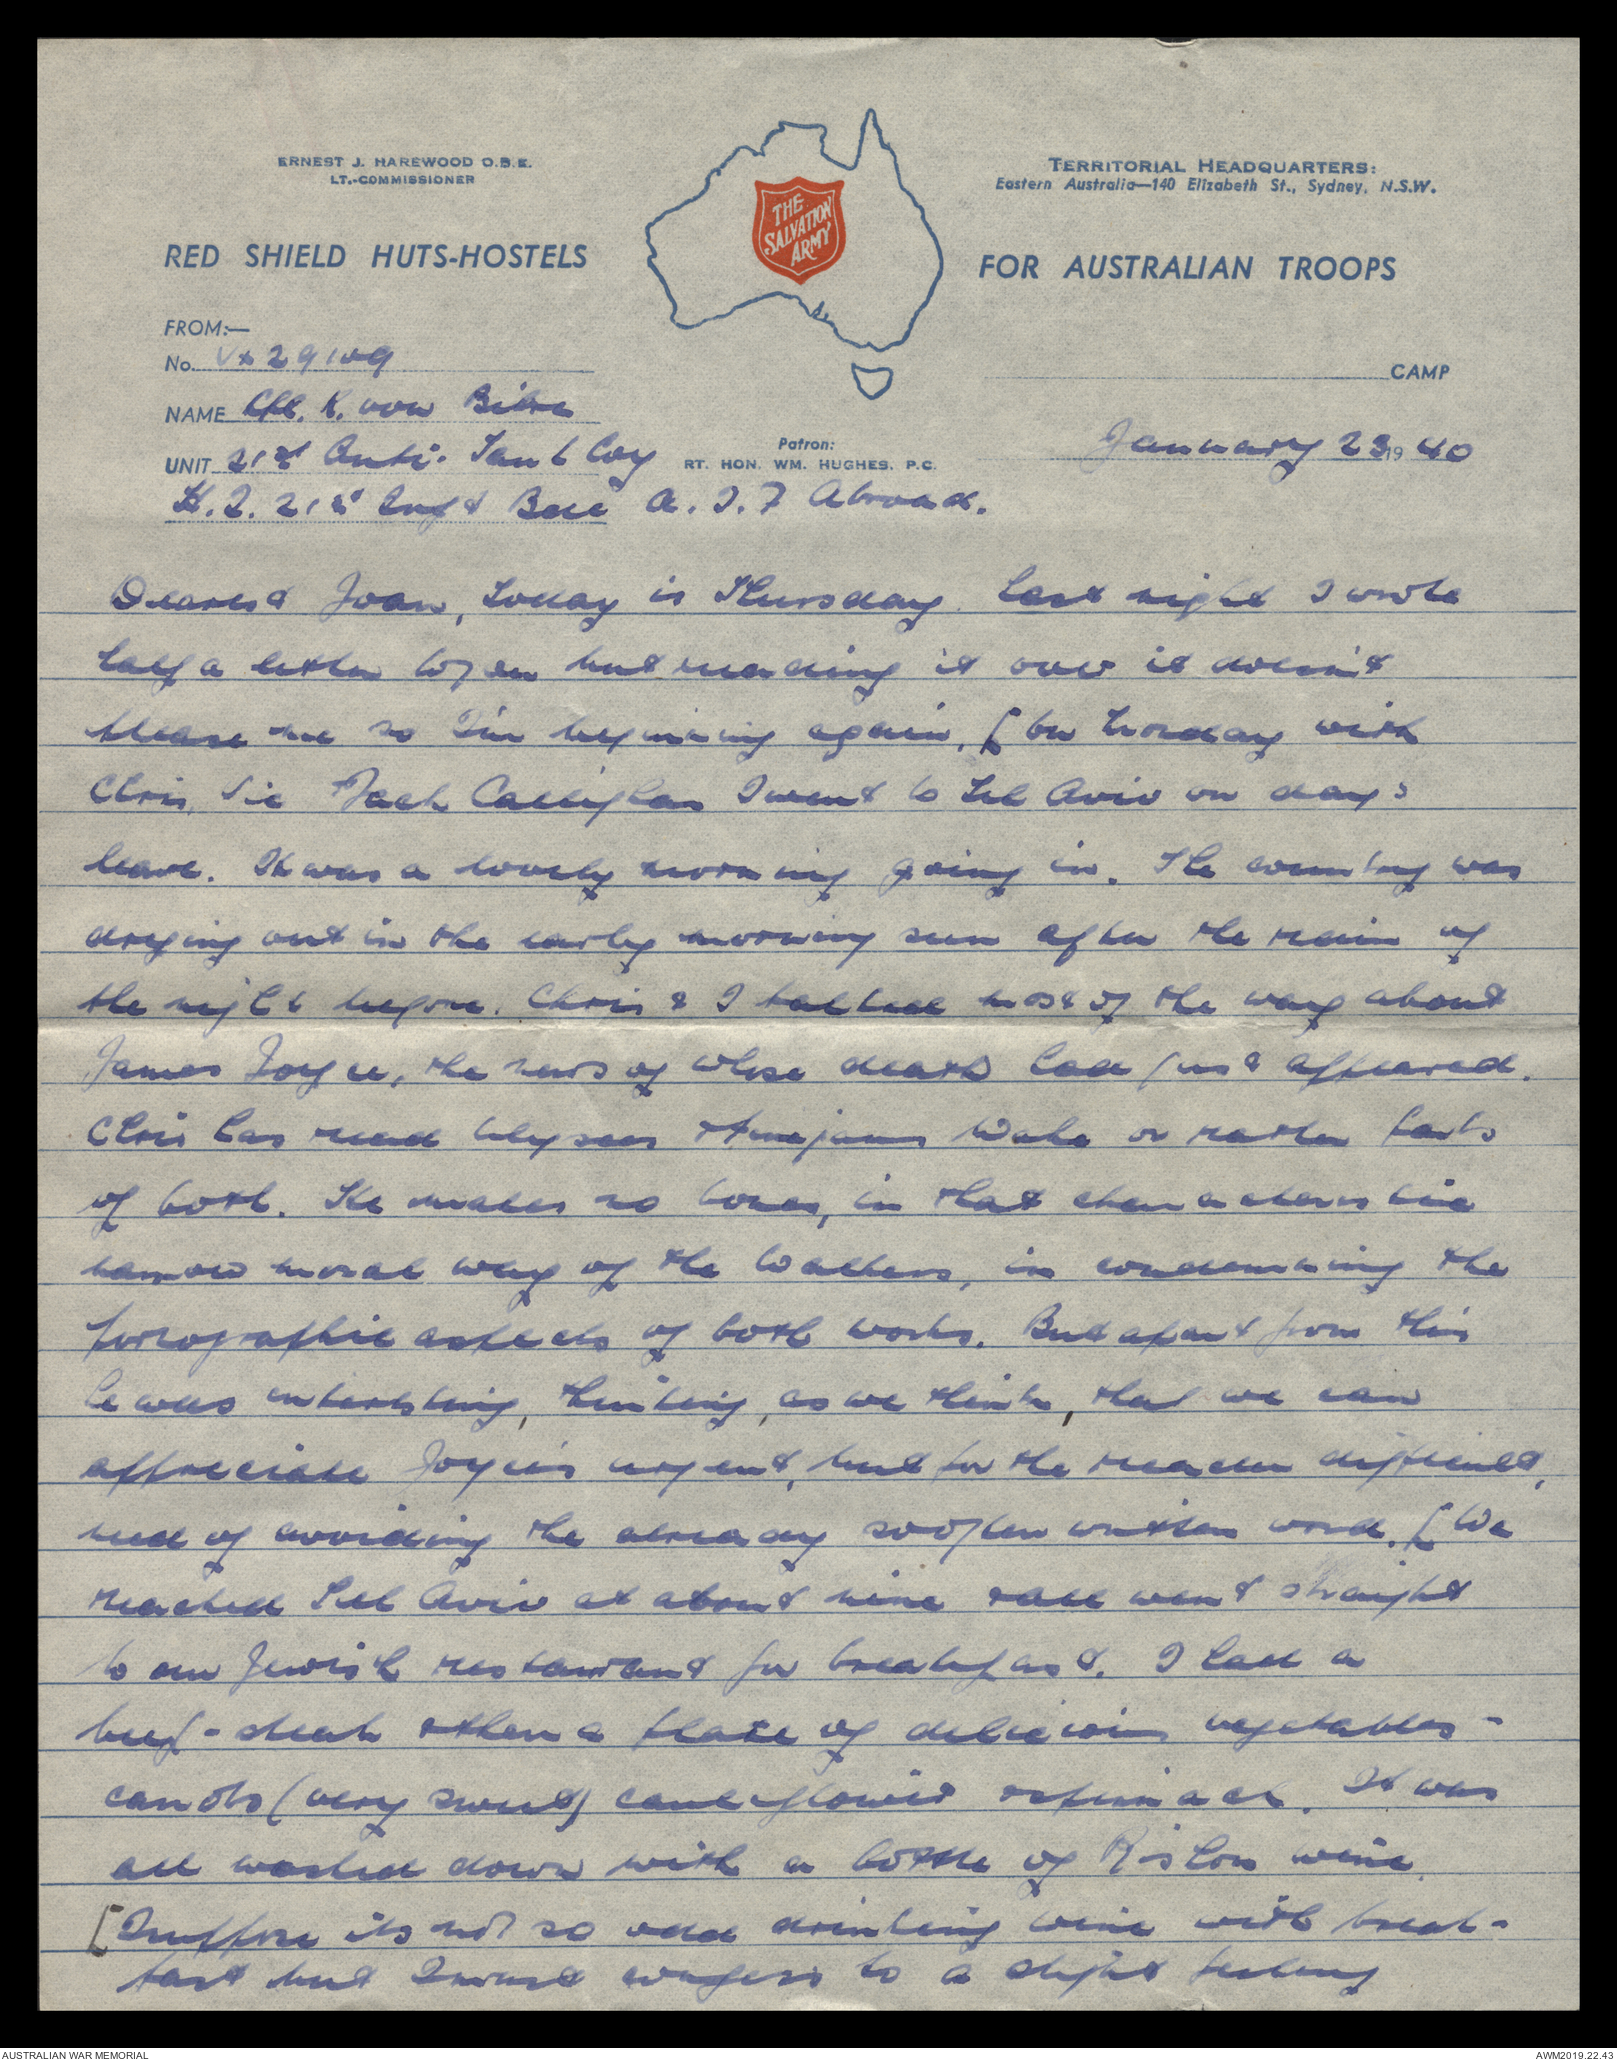 ERNEST J. HAREWOOD O.B.E.
LT.-COMMISSIONER
THE
SALVATION
ARMY
TERRITORIAL HEADQUARTERS:
Eastern Australia—140 Elizabeth St., Sydney, N.S.W.
RED SHIELD HUTS-HOSTELS
FOR AUSTRALIAN TROOPS
FROM:—
No. Vx 29109
CAMP
NAME Cpl. K. von Bibra
Patron:
RT. HON. WM. HUGHES. P.C.
January 23 1940
UNIT 21st Anti. Tank Coy
H.Q. 21st Inft Bde A.I.F Abroad.
Dearest Joan, Today is Thursday. Last night I wrote
half a letter to you but reading it over it doesn't
please me so I'm beginning again. [ On Monday with
Chris, Jack Callighan I went to Tel Aviv on day's
leave. It was a lovely morning going in. The country was
drying out in the early morning sun after the rain of
the night before. Chris & I talked most of the way about
James Joyce, the news of whose death had just appeared.
Chris has read Ulysses & Finnegans Wake or rather parts
of both. He makes no bones, in that characteristic
narrow moral way of the Walkers, in condemning the
pornographic aspects of both works. But apart from this
he was interesting, thinking, as we think, that we can
appreciate Joyce's urgent, but for the reader difficult,
need of avoiding the already so often written word. [ We
reached Tel Aviv at about nine & all went straight
to our Jewish restaurant for breakfast. I had a
beef-steak & then a plate of delicious vegetables -
carrots (very sweet) cauliflower & spinach. It was
all washed down with a bottle of Rishon wine.
[ I suppose its not so odd drinking wine with break-
fast but I must confess to a slight feeling